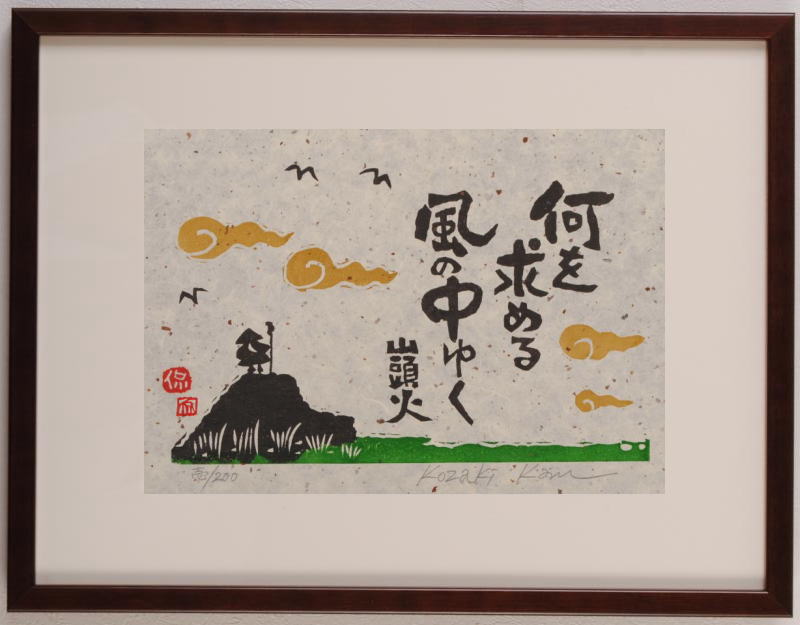 何を
求める
風の中ゆく
山頭火
侃
/200
Kozaki Kan